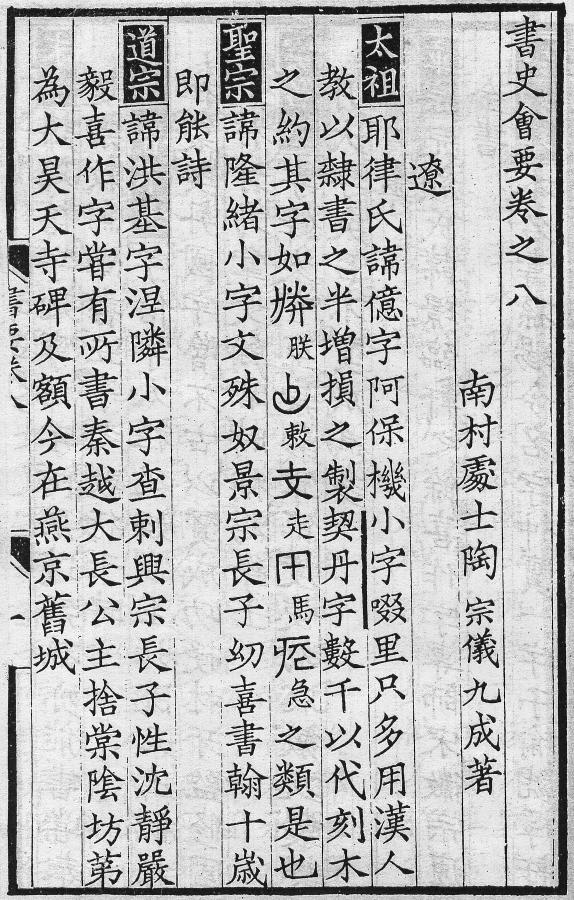 書史會要卷之八
南村處士陶 宗儀九成著
遼
太祖 耶律氏諱億字阿保機小字啜里只多用漢人
教以隸書之半增損之製契丹字數千以代刻木
之約其字如 朕 敕 走 馬 急之類是也
聖宗 諱隆緒小字文殊奴景宗長子幼喜書翰十歲
即能詩
道宗 諱洪基字涅隣小字查剌興宗長子性沈靜嚴
毅喜作字嘗有所書秦越大長公主捨棠陰坊第
為大昊天寺碑及額今在燕京舊城
一